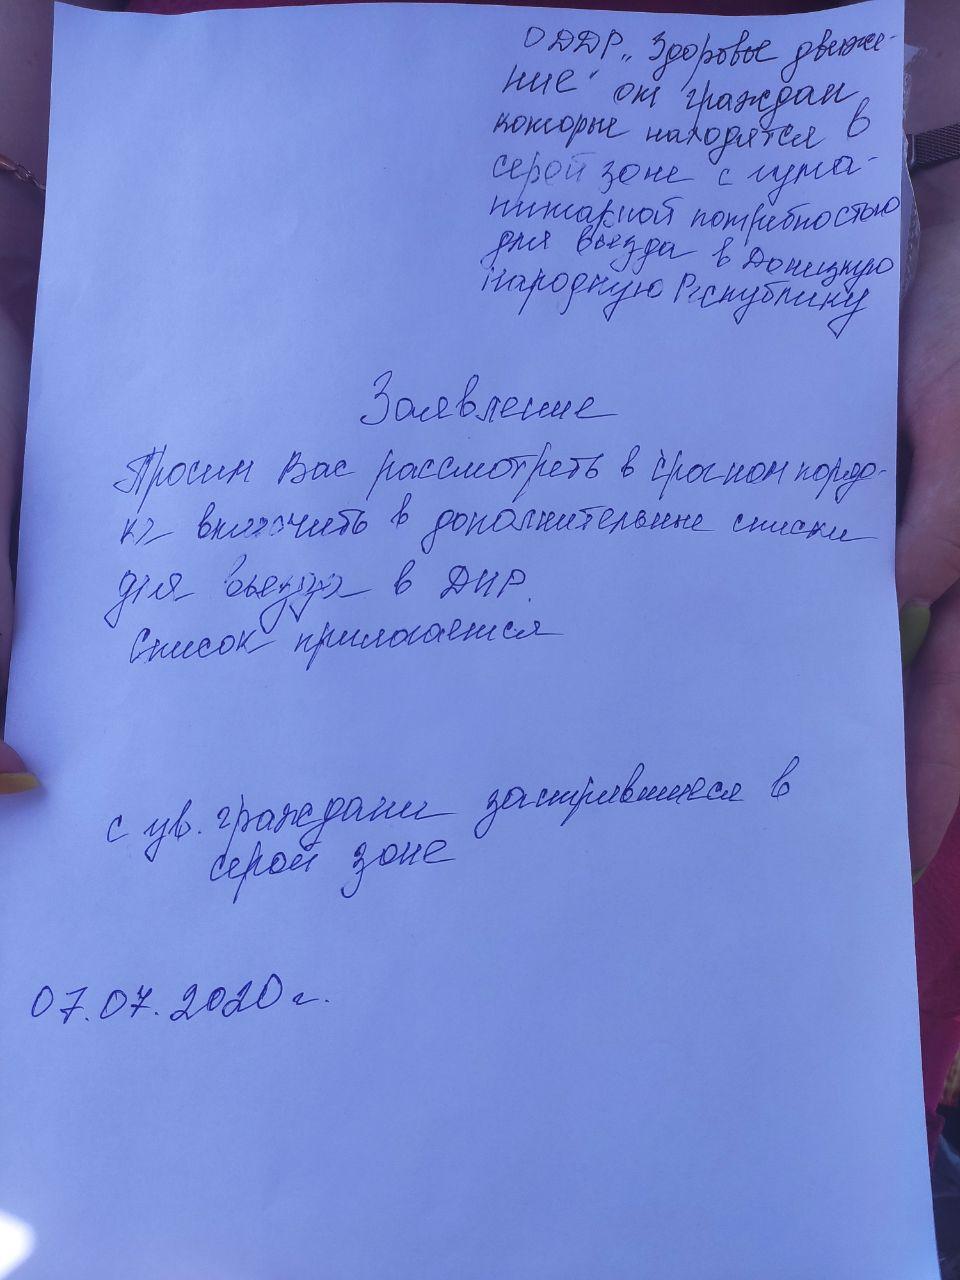 ОДДР „Здоровье движе-
ние" от граждан
которые находятся в
серой зоне с гума-
нитарной потребностью
для въезда в Донецкую
народную Республику
Заявление
Просим Вас рассмотреть в срочном поряд-
ке включить в дополнительные списки
для въезда в ДНР.
Список прилагается
с ув. граждани застрявшиеся в
серой зоне
07.07.2020 г.